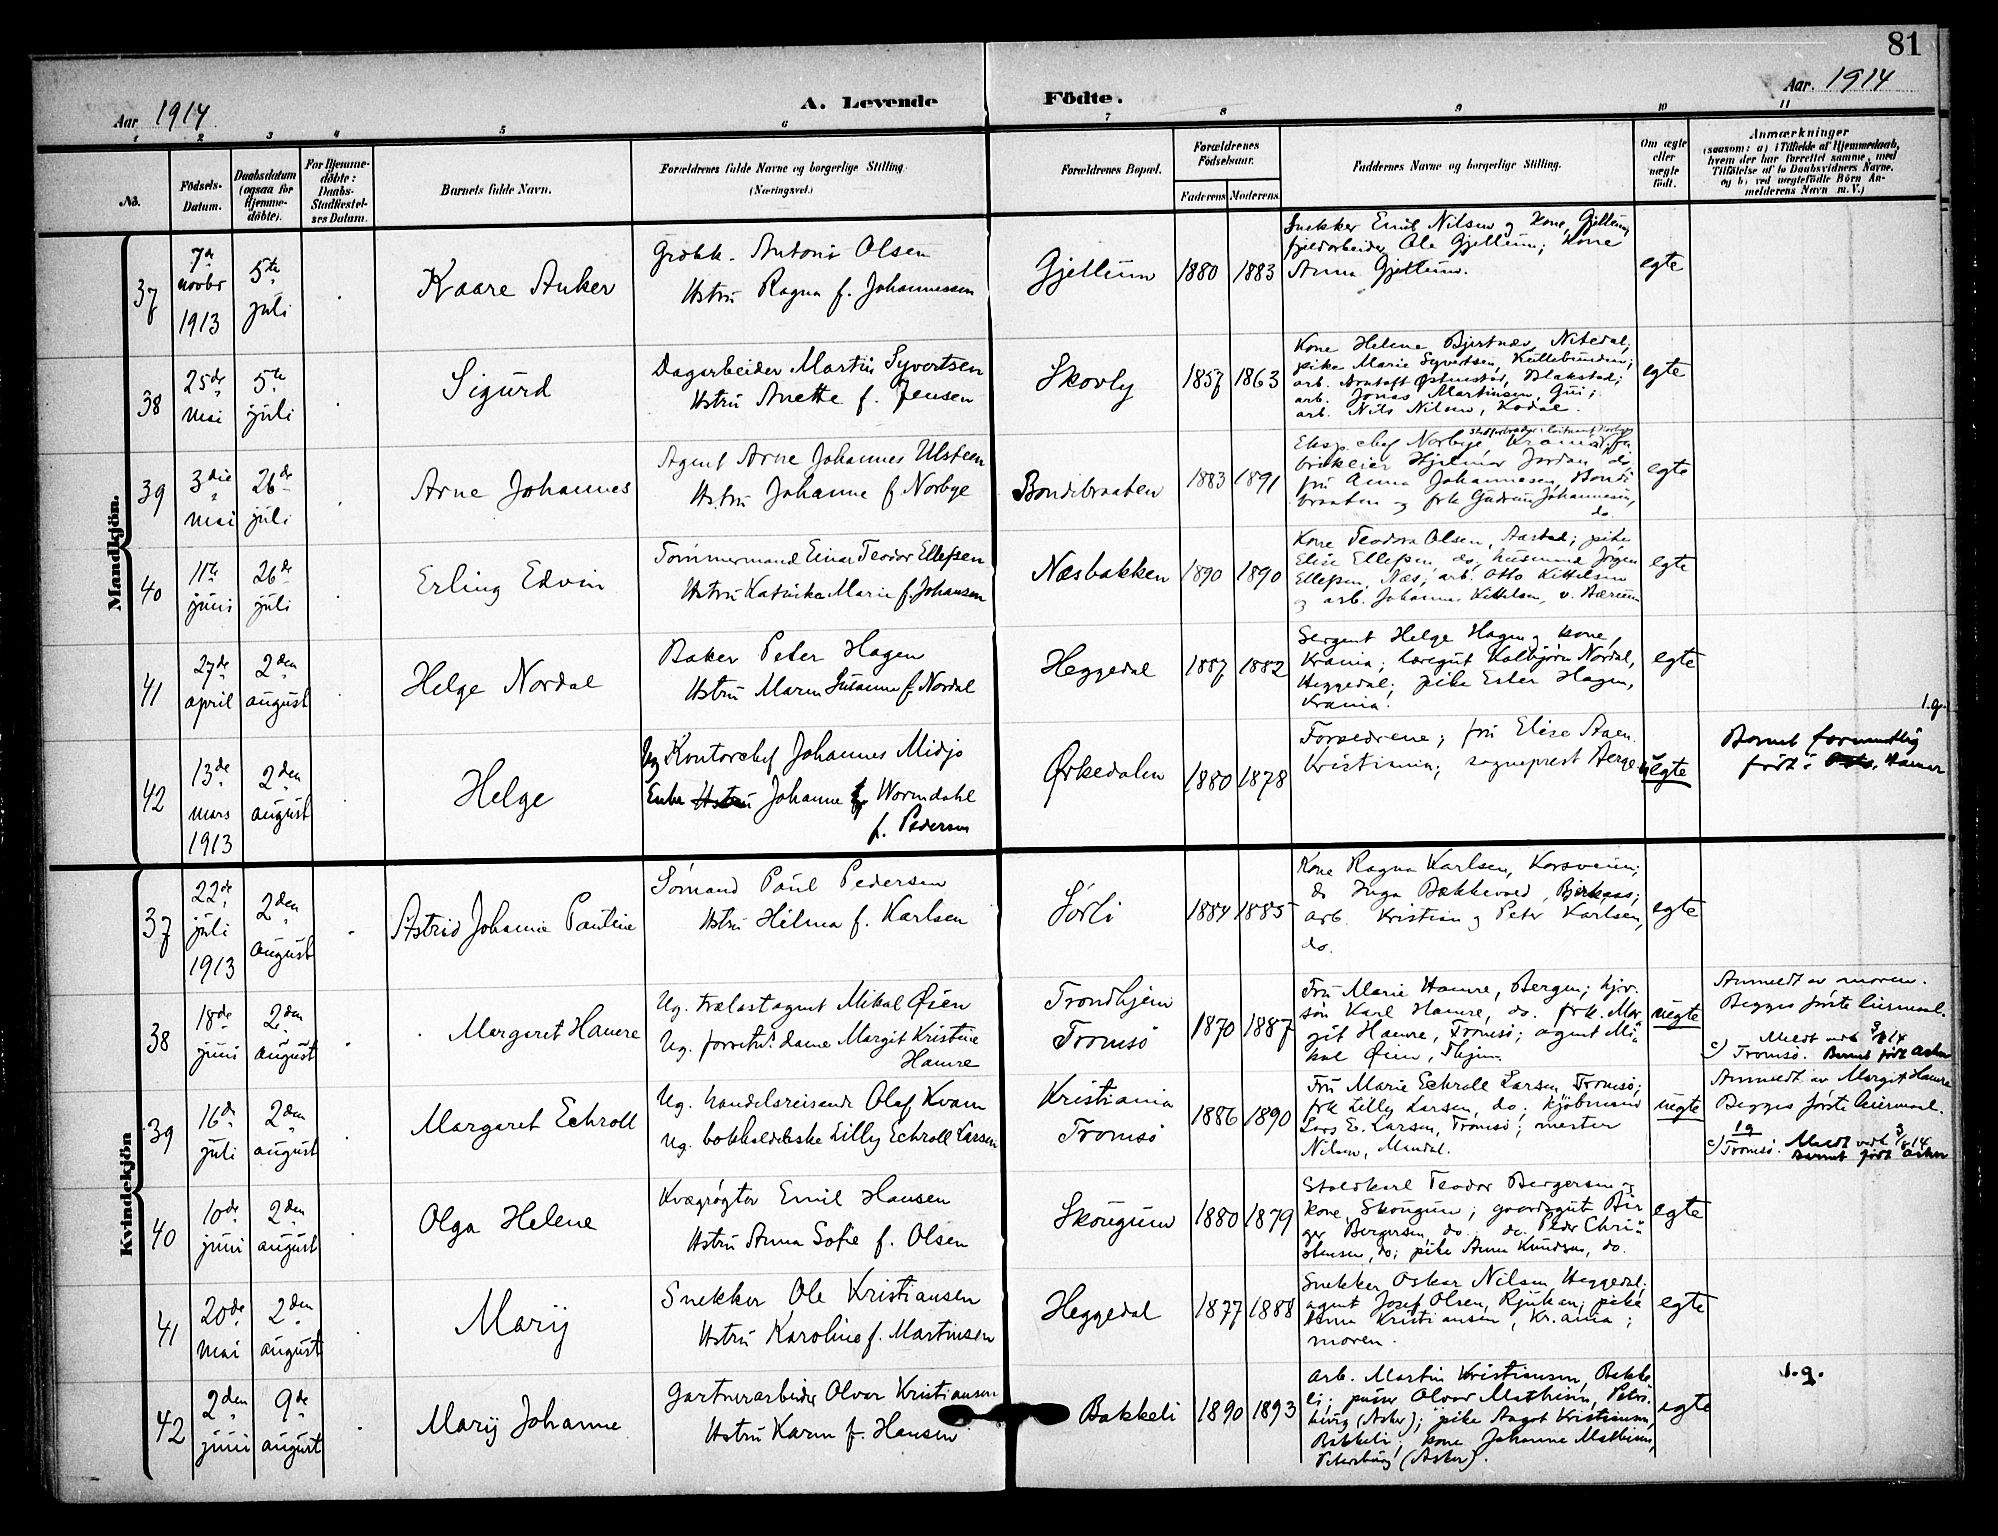 81
Aar 1914
A. Levende Födte.
Aar. 1914
1 2 3 4 5 6 7 8 9 10 11
No.
Födsels-Datum.
Daabsdatum (ogsaa for Hjemmedöbte).
For Hjemmedöbte: Daabs-Stadfæstelses Datum.
Barnets fulde Navn.
Forældrenes fulde Navne og borgerlige Stilling. (Næringsvei.)
Forældrenes Bopæl.
Forældrenes Födselsaar.
Faderens Moderens
Faddernes Navne og borgerlige Stilling.
Om ægte eller uægte födt.
Anmærkninger
(saasom: a) i Tilfælde af Hjemmedaab, hvem der har forrettet samme, med Tilföielse af to Daabsvidners Navne, og b) ved uægtefödte Börn Anmelderens Navn m. V.)
Mandkjön.
37
7de novbr 1913
5te juli
Kaare Anker
Antoni Olsen
Hstrú Ragna f. Johannessen
Gjellum
1880 1883
Snekker Emil Nilsen og kone, Gjellum,
fjeldarbeider Ole Gjellum; kone
Anna Gjellum.
egte
38
25de mai
5te juli
Sigurd
Dagarbeider Martin Syvertsen
Hstrú Anette f. Jensen
Skovly
1857 1863
Kone Helene Bjertnæs, Nitedal;
pike Marie Syvertsen,
arb. Blakstad;
arb. Jonas Martinsen,
arb. Nils Nilsen,
egte
39
3die mai
26de juli
Arne Johannes
Agent Arne Johannes Ulsteen
Hstrú Johanne f. Norbye
Bondibraaten
1883 1891
Eksp. chef Norbye,
Hjalmar Jordan do,
frú Anna Johannesen, Bondi
braaten og frk Gudrun Johannesen,
do.
egte
40
11te juni
26de juli
Erling Edvin
Tømmermand Einar Teodor Ellefsen
Hstrú Katinka Marie f. Johansen
Næsbakken
1890 1890
Kone Teodora Olsen, Aastad; pike
Elise Ellefsen, do, husmand Jørgen
Ellefsen, Næs; arb. Otto Kittelsen
og arb. Johannes Kittelsen, v. Bærum
egte
41
27de april
2den august
Helge Nordal
Baker Peter Hagen
Hstrú Maren Susanne f. Nordal
Heggedal
1887 1882
Sergent Helge Hagen og kone,
Krania; læregut Kolbjørn Nordal,
Heggedal; pike Ester Hagen,
Krania.
egte
42
13de mars 1913
2den august
Helge
Ug Kontorchef Johannes Midjo
Enke Hstrú Johanne f. Wormdahl
f. Pedersen
Ørkedalen
1880 1878
Forældrene; frú Elise Steen
Kristiania; sogneprest Berge
uegte
1.g.
Barnet formentlig
født i Hamar
Kvindekjön
37
22de juli 1913
2den august
Astrid Johanne Pauline
Sømand Paul Pedersen
Hstrú Hilma f. Karlsen
Sørli
1884 1885
Kone Ragna Karlsen, Korsveien;
do Inga Bakkevold,
arb. Kristian og Peter Karlsen,
do.
egte
38
18de juni
2den august
Margaret Hamre
Ug. trælastagent Mikal Øien
Ug. forretn.dame Margit Kristine
Hamre
Trondhjem
Tromsö
1870 1887
Frú Marie Hamre, Bergen;
Karl Hamre, do. frk. Mar-
git Hamre, Tromsö; agent Mi-
kal Øien, Thjem
uegte
Anmeldt av moren.
Begges første leiermaal.
c) Tromsö. Barnet født Asker
Meldt vedk 3/8 14
39
16de juli
2den august
Margaret Eckroll
Ug. handelsreisende Olaf Kvam
Ug. bokholderske Lilly Eckroll Larsen
Kristiania
Tromsö
1886 1890
Frú Marie Eckroll Larsen, Tromsö;
frk Lilly Larsen, do; kjøbmand
Lars E. Larsen, Tromsö; mester
Nilsen, Mandal.
uegte
Anmeldt av Margit Hamre
Begges første leiermaal.
1g
c) Tromsö. Meldt vedk 3/8 14
Barnet født Asker
40
10de juni
2den august
Olga Helene
Kvægrøgter Emil Hansen
Hstrú Anna Sofie f. Olsen
Skougum
1880 1879
Staldkarl Teodor Bergersen og
kone, Skougum; gaardsgut Bir-
ger Bergersen, do. do. Peder Chri-
stensen, do; pike Anna Knudsen, do.
egte
41
20de mai
2den august
Mary
Snekker Ole Kristiansen
Hstrú Karoline f. Martinsen
Heggedal
1877 1888
Snekker Oskar Nilsen, Heggedal;
agent Josef Olsen, Rjukan; pike
Anna Kristiansen, Kr.ania;
moren.
egte
42
2den juni
9de august
Mary Johanne
Gartnerarbeider Olvar Kristiansen
Hstrú Karen f. Hansen
Bakkeli
1890 1893
Arb. Martin Kristiansen, Bakke-
li; Olvar Mathisen, Peters-
burg (Asker); pike Aagot Kristiansen,
Bakkeli; kone Johanne Mathisen,
Petersburg (Asker).
egte
1.g.